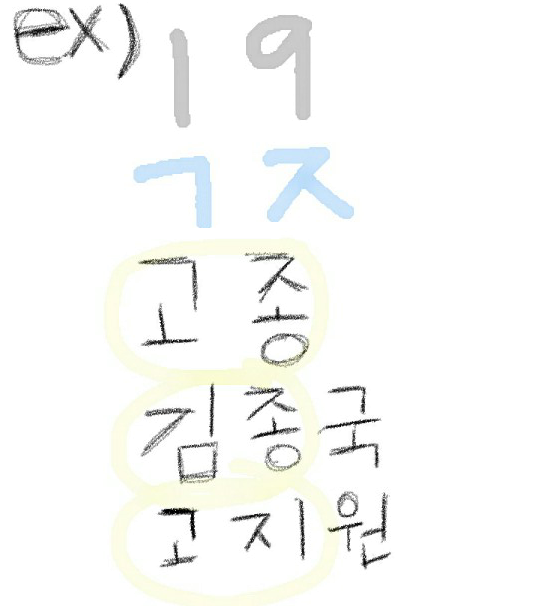 ex) 1 9
ㄱ ㅈ
고종
김종국
고지원